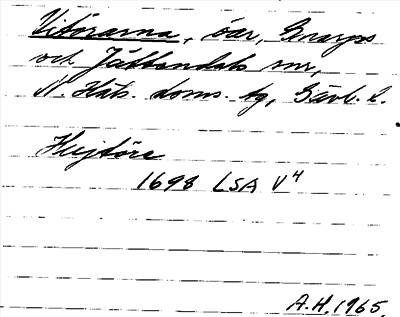 Vitörarna, öar, Gnarps
och Jättendals snr,
N. Häls. doms. tg, Gävl. l.
Huijtöre
1698 LSA V⁴
A.H. 1965.